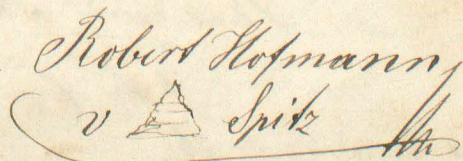 Robert Hofmann,
v Spitz